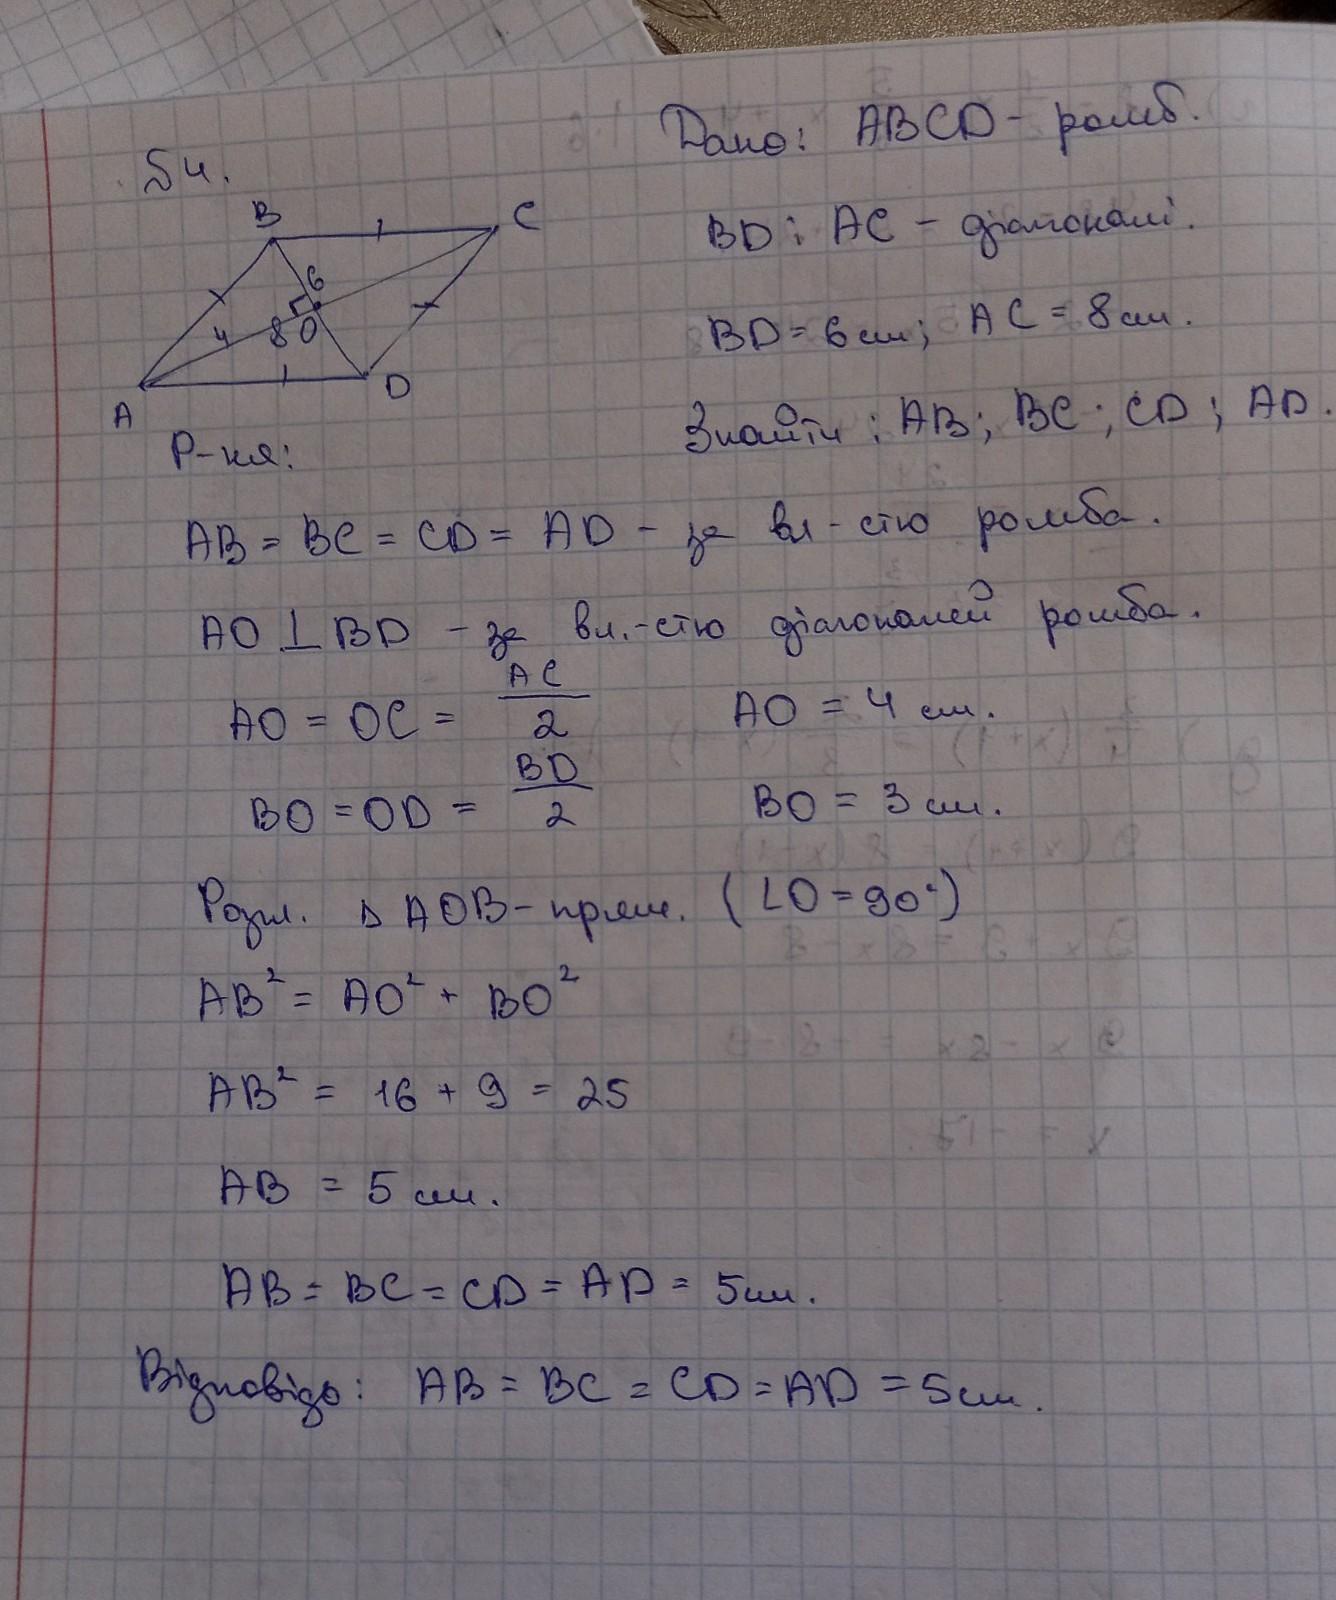 №4.
Дано: ABCD - ромб.
BD і AC - діагоналі.
BD = 6 см; AC = 8 см.
Знайти: AB; BC; CD; AD.
B
C
6
4
8
O
A
D
Р-ня:
AB = BC = CD = AD - за вл-стю ромба.
AO ⊥ BD - за вл.-стю діагоналей ромба.
AO = OC = AC/2 AO = 4 см.
BO = OD = BD/2 BO = 3 см.
Розгл. △ AOB - прям. (∠O = 90°)
AB² = AO² + BO²
AB² = 16 + 9 = 25
AB = 5 см.
AB = BC = CD = AD = 5 см.
Відповідь: AB = BC = CD = AD = 5 см.